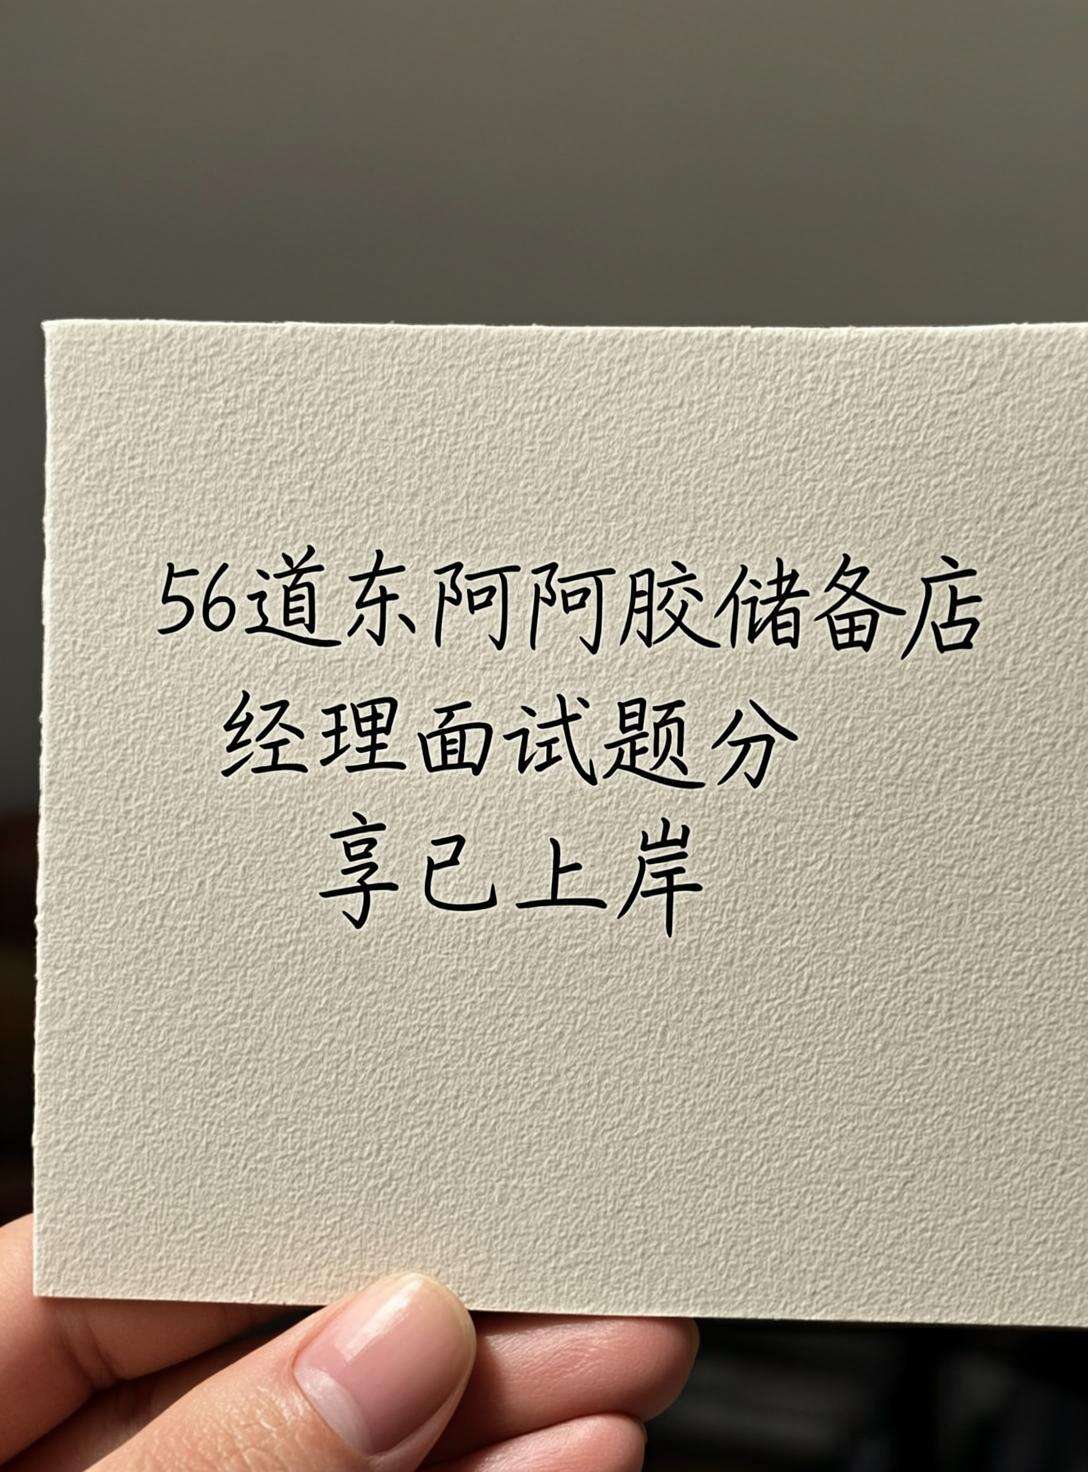 56道东阿阿胶储备店
经理面试题分
享已上岸